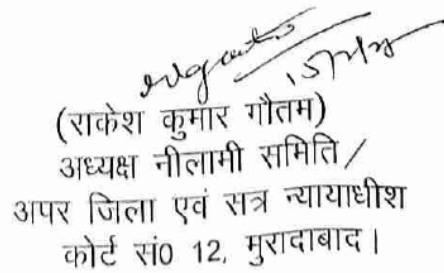 (राकेश कुमार गौतम)
अध्यक्ष नीलामी समिति /
अपर जिला एवं सत्र न्यायाधीश
कोर्ट सं0 12, मुरादाबाद।